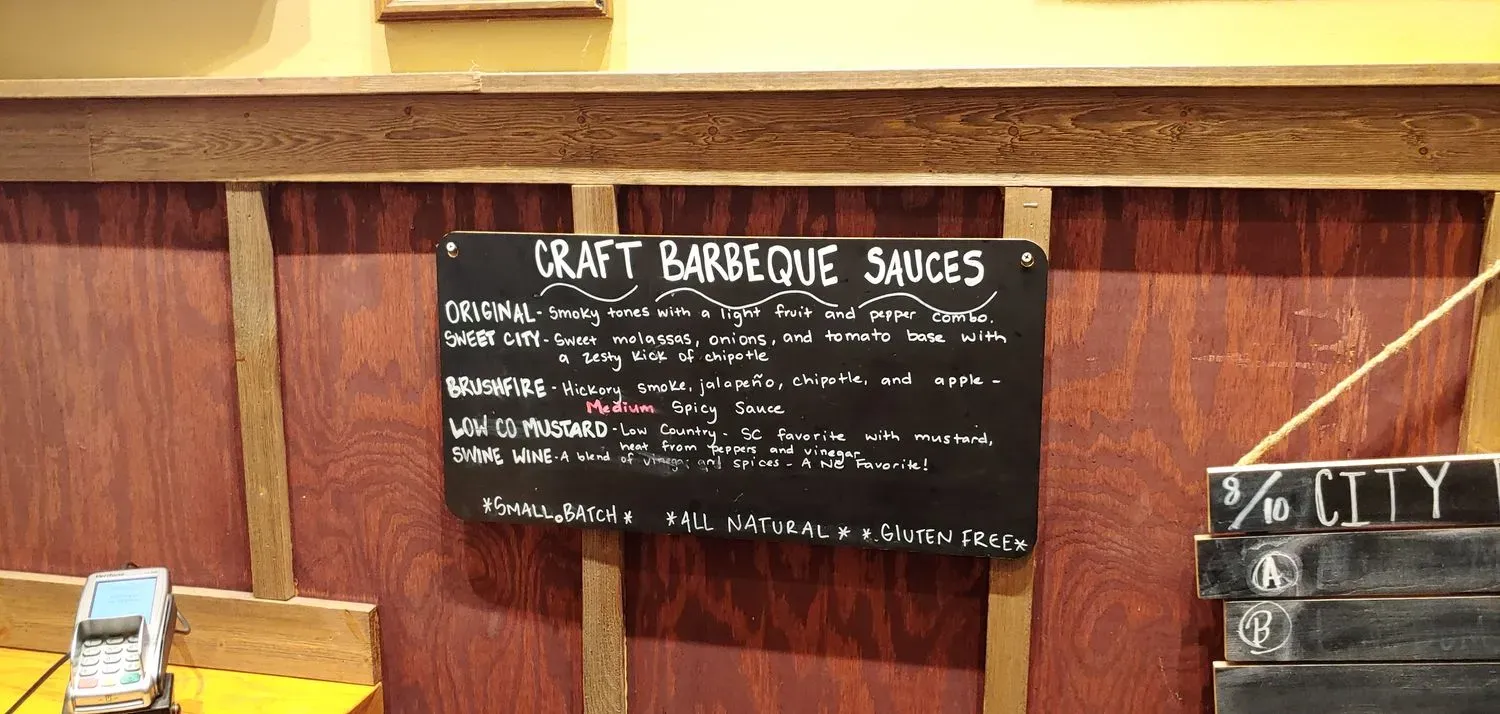 CRAFT BARBEQUE SAUCES
ORIGINAL - Smoky tones with a light fruit and pepper combo.
SWEET CITY - Sweet molassas, onions, and tomato base with
a zesty kick of chipotle
BRUSHFIRE - Hickory smoke, jalapeño, chipotle, and apple -
Medium Spicy Sauce
LOW CO MUSTARD - Low Country - SC favorite with mustard,
heat from peppers and vinegar
SWINE WINE - A blend of vinegar and spices - A NC Favorite!
*SMALL BATCH* *ALL NATURAL* *GLUTEN FREE*
8/10 CITY
A
B